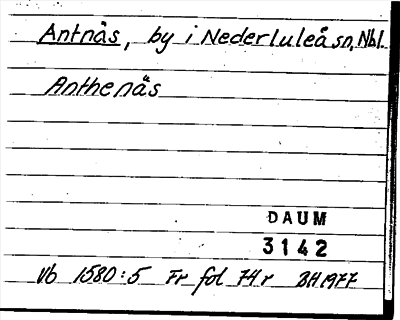 Antnäs, by i Nederluleå sn, Nbl.
Anthenäs
DAUM
3142
Vb 1580:5 Fr fol 74r BH 1977